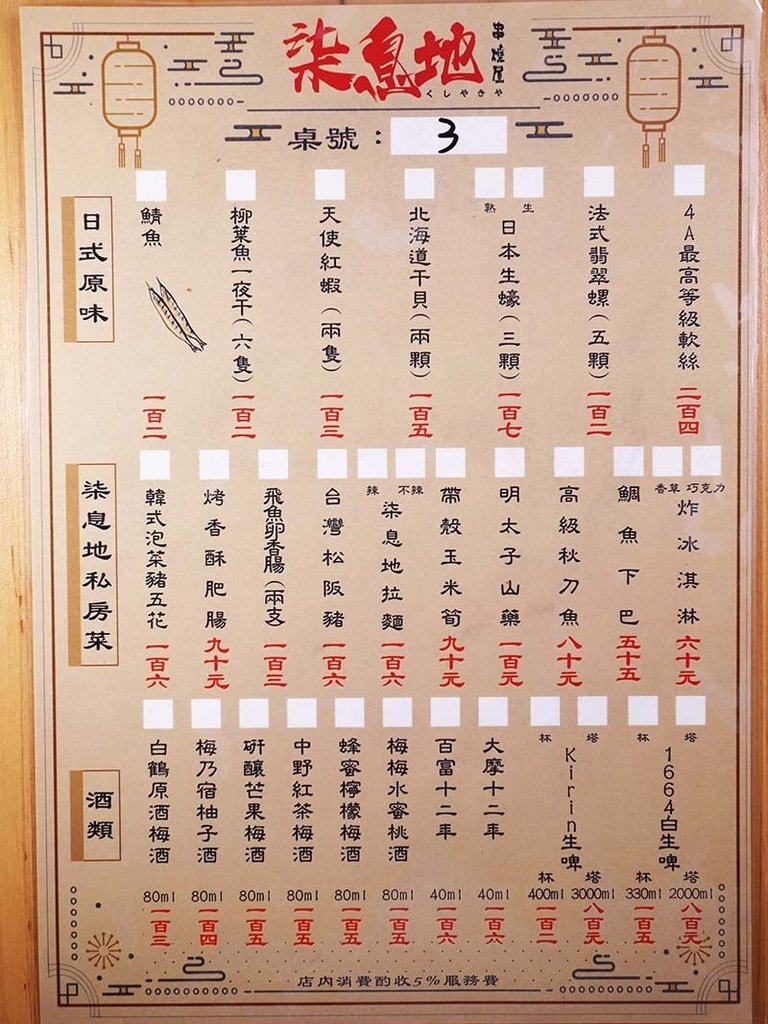 柒息地
串燒屋
くしやきや
桌號：3
日式原味
熟 生
4A最高等級軟絲 二百四
法式翡翠螺（五顆） 一百二
日本生蠔（三顆） 一百七
北海道干貝（兩顆） 一百五
天使紅蝦（兩隻） 一百三
柳葉魚一夜干（六隻） 一百二
鯖魚 一百二
柒息地私房菜
香草 巧克力
炸冰淇淋 六十元
鯛魚下巴 五十五
高級秋刀魚 八十元
明太子山藥 一百元
帶殼玉米筍 九十元
辣 不辣
柒息地拉麵 一百六
台灣松阪豬 一百六
飛魚卵香腸（兩支） 一百三
烤香酥肥腸 九十元
韓式泡菜豬五花 一百六
酒類
杯 塔
1664白生啤
杯 330ml 一百五
塔 2000ml 八百元
杯 塔
Kirin生啤
杯 400ml 一百二
塔 3000ml 八百元
大摩十二年 40ml 一百六
百富十二年 40ml 一百六
梅梅水蜜桃酒 80ml 一百五
蜂蜜檸檬梅酒 80ml 一百五
中野紅茶梅酒 80ml 一百五
研釀芒果梅酒 80ml 一百五
梅乃宿柚子酒 80ml 一百四
白鶴原酒梅酒 80ml 一百三
店內消費酌收5%服務費